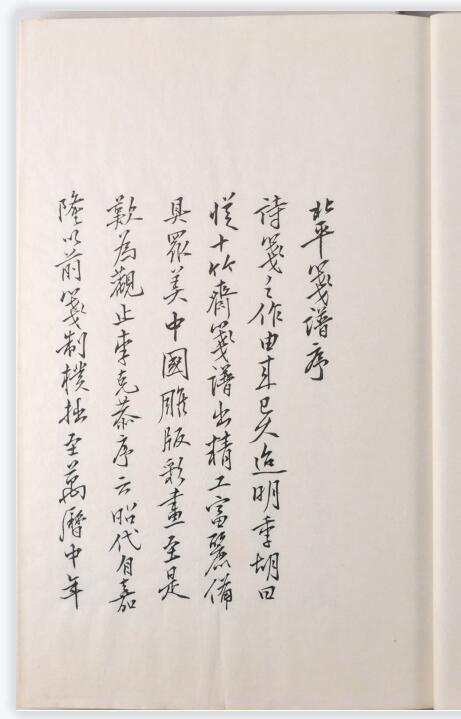 北平箋譜序
詩箋之作由来已久迨明季胡曰
從十竹齋箋譜出精工富麗備
具眾美中國雕版彩畫至是
歎為觀止李克恭序云昭代自嘉
隆以前箋制樸拙至萬曆中年